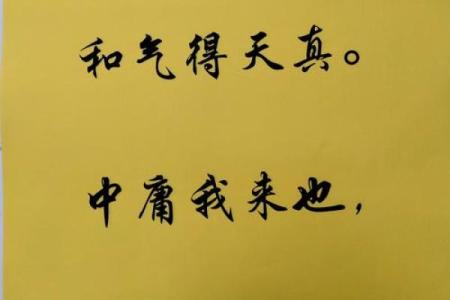 和气得天真。
中庸我来也，